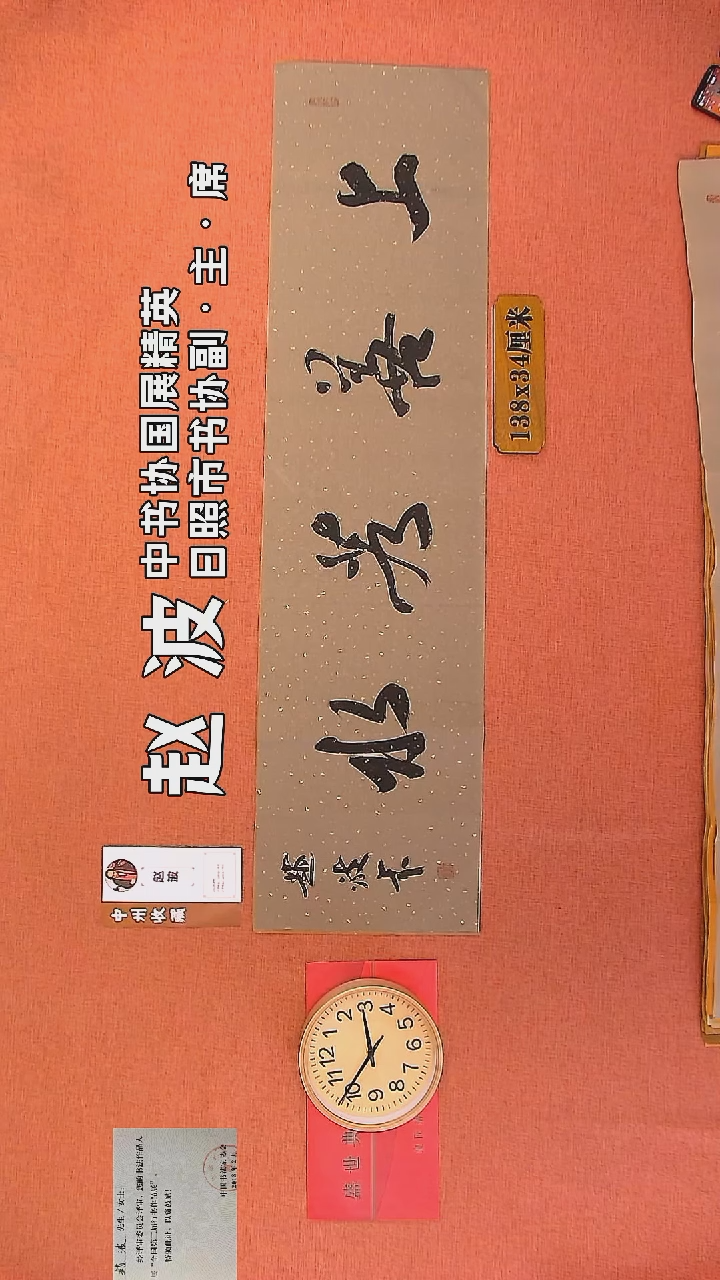 赵波
中书协国展精英
日照市书协副·主·席
赵波
中州收藏
上善若水
138x34厘米
盛世典
12
1
2
3
4
5
6
7
8
9
10
11
先生/女士: